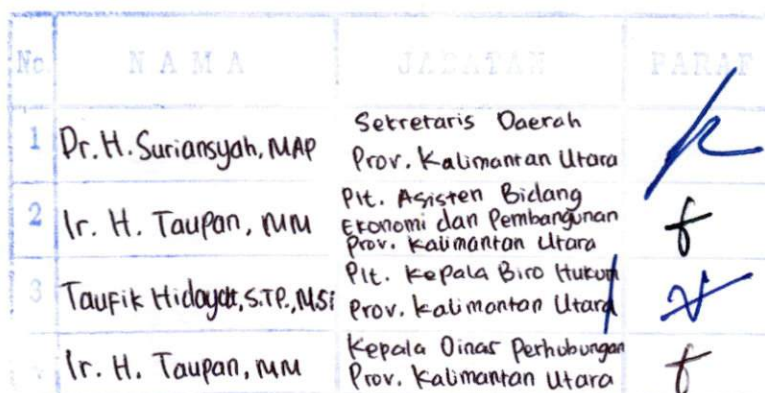 No NAMA JABATAN PARAF
1 Dr. H. Suriansyah, MAP Sekretaris Daerah
Prov. Kalimantan Utara
2 Ir. H. Taupan, MM Plt. Asisten Bidang
Ekonomi dan Pembangunan
Prov. Kalimantan Utara
3 Taufik Hidayat, S.TP., MSi Plt. Kepala Biro Hukum
Prov. Kalimantan Utara
Ir. H. Taupan, MM Kepala Dinas Perhubungan
Prov. Kalimantan Utara